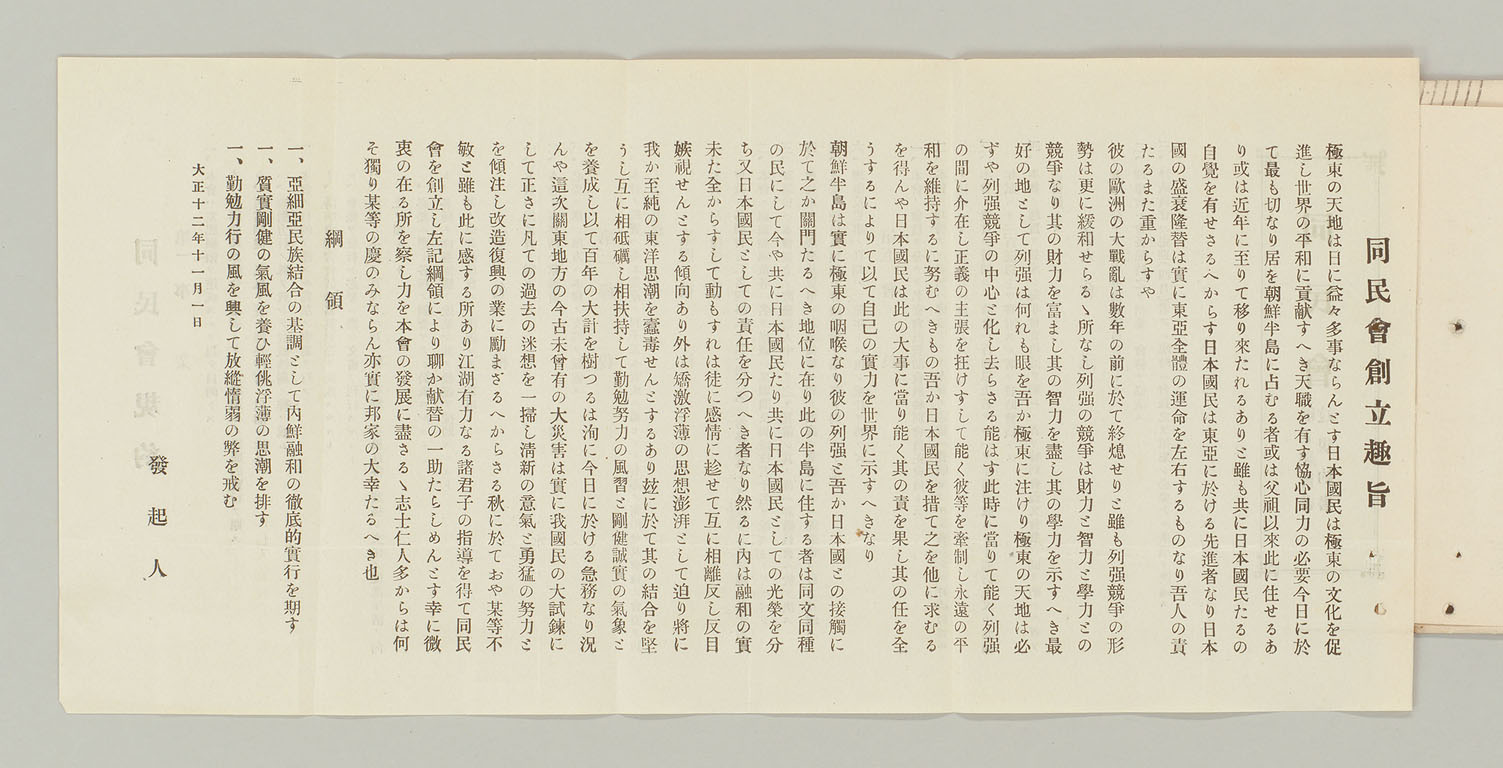 同民會創立趣旨
極東の天地は日に益々多事ならんとす日本國民は極東の文化を促
進し世界の平和に貢献すへき天職を有す恊心同力の必要今日に於
て最も切なり居を朝鮮半島に占むる者或は父祖以來此に住せるあ
り或は近年に至りて移り來たれるありと雖も共に日本國民たるの
自覺を有せさるへからす日本國民は東亞に於ける先進者なり日本
國の盛衰隆替は實に東亞全體の運命を左右するものなり吾人の責
たるまた重からすや
彼の歐洲の大戰亂は數年の前に於て終熄せりと雖も列强競爭の形
勢は更に緩和せらるゝ所なし列强の競爭は財力と智力と學力との
競爭なり其の財力を富まし其の智力を盡し其の學力を示すへき最
好の地として列强は何れも眼を吾か極東に注けり極東の天地は必
すや列强競爭の中心と化し去らさる能はす此時に當りて能く列强
の間に介在し正義の主張を狂けすして能く彼等を牽制し永遠の平
和を維持するに努むへきもの吾か日本國民を措て之を他に求むる
を得んや日本國民は此の大事に當り能く其の責を果し其の任を全
うするによりて以て自己の實力を世界に示すへきなり
朝鮮半島は實に極東の咽喉なり彼の列强と吾か日本國との接觸に
於て之か關門たるへき地位に在り此の半島に住する者は同文同種
の民にして今や共に日本國民たり共に日本國民としての光榮を分
ち又日本國民としての責任を分つへき者なり然るに內は融和の實
未た全からすして動もすれは徒に感情に趁せて互に相離反し反目
嫉視せんとする傾向あり外は矯激浮薄の思想澎湃として迫り將に
我か至純の東洋思潮を蠧毒せんとするあり玆に於て其の結合を堅
うし互に相砥礪し相扶持して勤勉努力の風習と剛健誠實の氣象と
を養成し以て百年の大計を樹つるは洵に今日に於ける急務なり況
んや這次關東地方の今古未曾有の大災害は實に我國民の大試鍊に
して正さに凡ての過去の迷想を一掃し淸新の意氣と勇猛の努力と
を傾注し改造復興の業に勵まざるへからさる秋に於ておや某等不
敏と雖も此に感する所あり江湖有力なる諸君子の指導を得て同民
會を創立し左記綱領により聊か献替の一助たらしめんとす幸に微
衷の在る所を察し力を本會の發展に盡さるゝ志士仁人多からは何
そ獨り某等の慶のみならん亦實に邦家の大幸たるへき也
綱領
一、亞細亞民族結合の基調として內鮮融和の徹底的實行を期す
一、質實剛健の氣風を養ひ輕佻浮薄の思潮を排す
一、勤勉力行の風を興して放縱惰弱の弊を戒む
大正十二年十一月一日
發起人